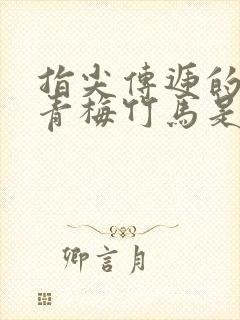 指尖傳遞的
青梅竹馬是
卿言月